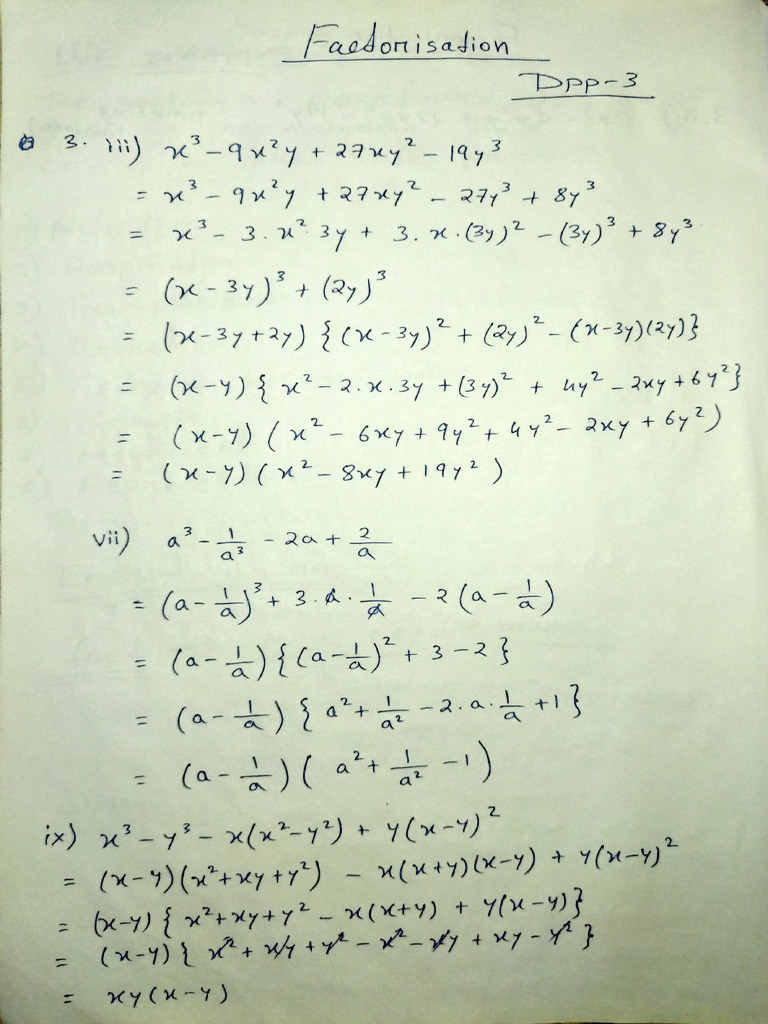 Factorisation
DPP-3
3. iii) x³ - 9x²y + 27xy² - 19y³
= x³ - 9x²y + 27xy² - 27y³ + 8y³
= x³ - 3.x².3y + 3.x.(3y)² - (3y)³ + 8y³
= (x-3y)³ + (2y)³
= (x-3y+2y) {(x-3y)² + (2y)² - (x-3y)(2y)}
= (x-y) { x² - 2.x.3y + (3y)² + 4y² - 2xy + 6y²}
= (x-y) ( x² - 6xy + 9y² + 4y² - 2xy + 6y² )
= (x-y) ( x² - 8xy + 19y² )
vii) a³ - 1/a³ - 2a + 2/a
= (a - 1/a)³ + 3.a.1/a - 2(a - 1/a)
= (a - 1/a) {(a - 1/a)² + 3 - 2}
= (a - 1/a) { a² + 1/a² - 2.a.1/a + 1}
= (a - 1/a) ( a² + 1/a² - 1)
ix) x³ - y³ - x(x²-y²) + y(x-y)²
= (x-y)(x²+xy+y²) - x(x+y)(x-y) + y(x-y)²
= (x-y) { x²+xy+y² - x(x+y) + y(x-y)}
= (x-y) { x² + xy + y² - x² - xy + xy - y² }
= xy(x-y)